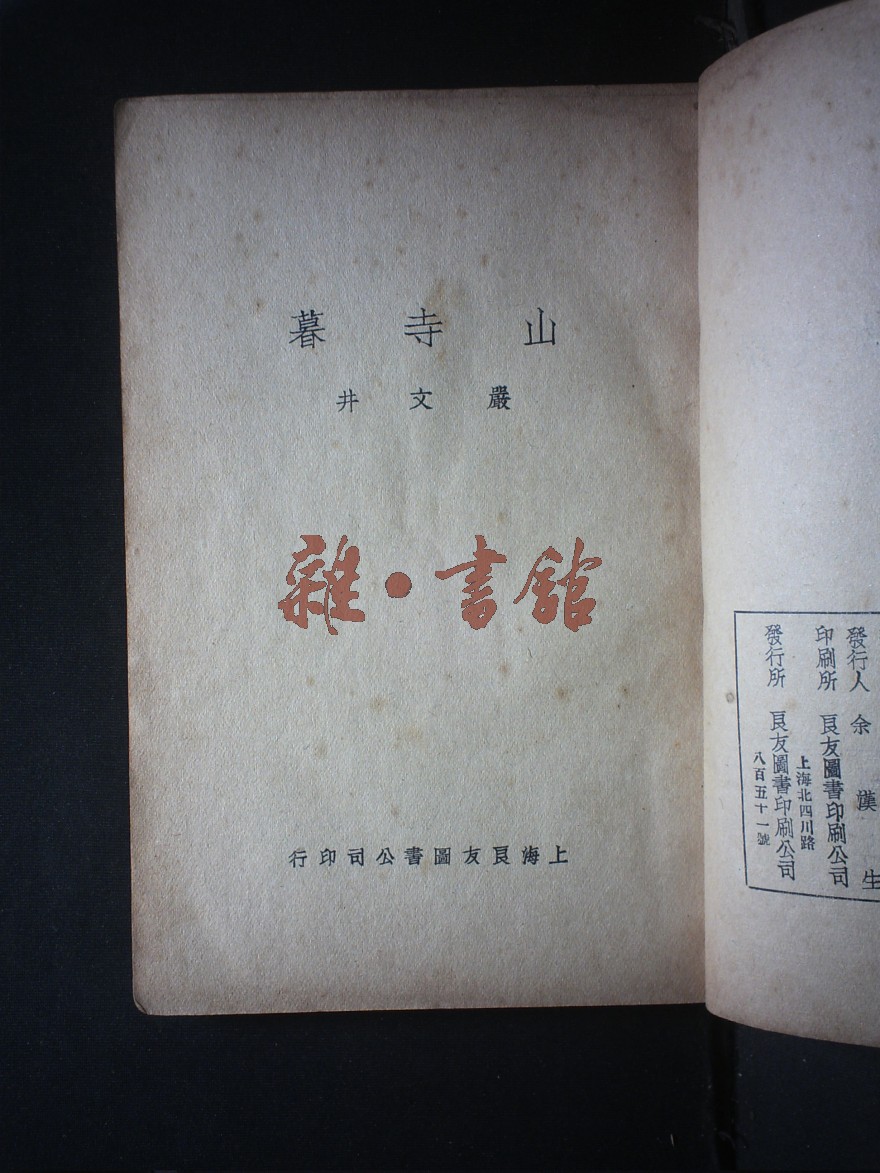 山寺暮
嚴文井
雜•書館
上海良友圖書公司印行
發行人 余漢生
印刷所 良友圖書印刷公司
發行所 良友圖書印刷公司
上海北四川路
八百五十一號